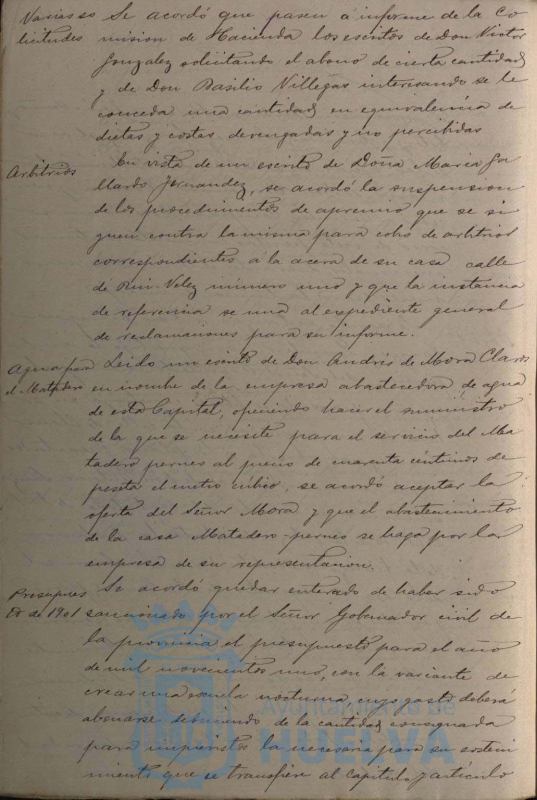 Varias so Se acordó que pasen á informe de la Co
licitudes mision de Hacienda los escritos de Don Victor
Gonzalez solicitando el abono de cierta cantidad
y de Don Basilio Villegas interesando se le
conceda una cantidad en equivalencia de
dietas y costas devengadas y no percibidas
Arbitrios En vista de un escrito de Doña Maria Ga
llardo Fernandez, se acordó la suspension
de los procedimientos de apremio que se si
guen contra la misma para cobro de arbitrios
correspondientes a la acera de su casa calle
de Rui-Velez número uno y que la instancia
de referencia se una al expediente general
de reclamaciones para su informe.
Agua para Leido un escrito de Don Andrés de Mora Claros
el Matadero en nombre de la empresa abastecedora de agua
de esta Capital, ofreciendo hacer el suministro
de la que se necesite para el servicio del Ma
tadero pernes al precio de cuarenta céntimos de
peseta el metro cúbico, se acordó aceptar la
oferta del Señor Mora y que el abastecimiento
de la casa Matadero pernes se haga por la
empresa de su representacion.
Presupues Se acordó quedar enterado de haber sido
to de 1901 sancionado por el Señor Gobernador civil de
la provincia el presupuesto para el año
de mil novecientos uno, con la variante de
crear una escuela nocturna, cuyo gasto deberá
abonarse de la cantidad consignada
para imprevistos la necesaria para su sosteni
miento que se transfiere al Capítulo y artículo
Ayuntamiento de
HUELVA